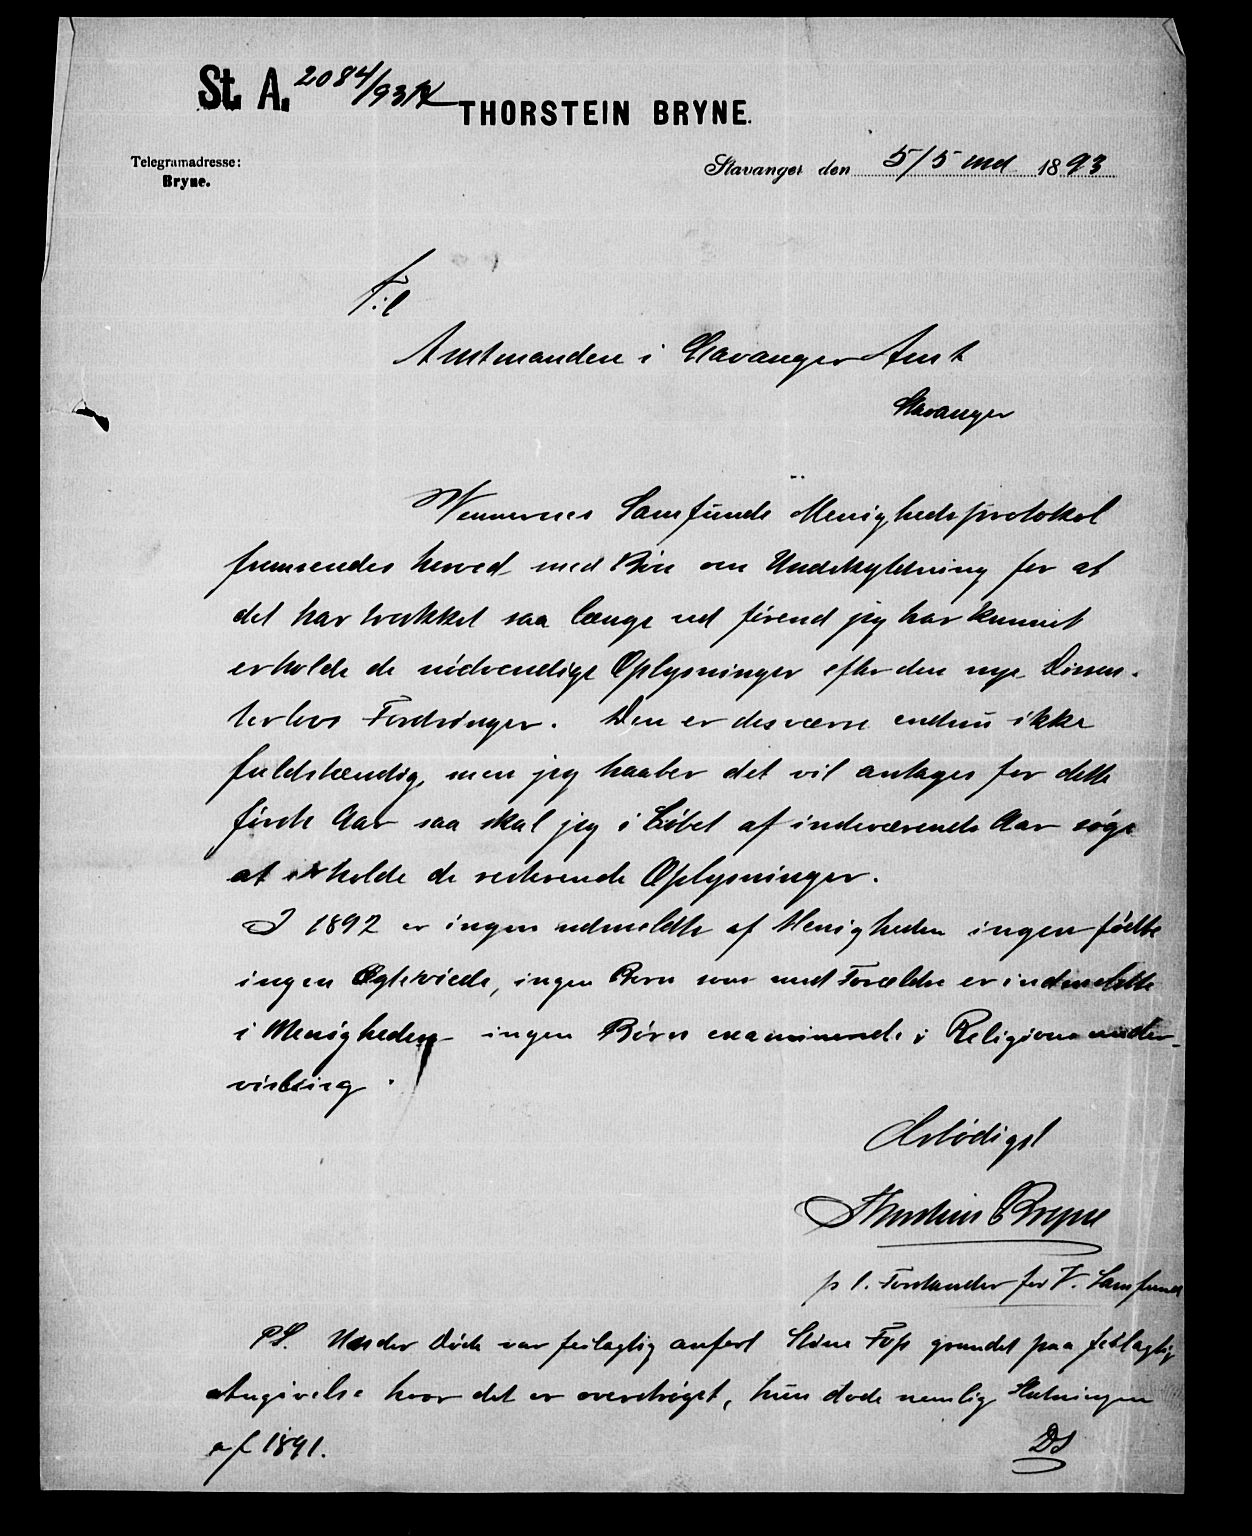 St. A. 2084/93
THORSTEIN BRYNE.
Telegramadresse:
Bryne.
Stavanger den 5/5 1893
Til
Amtmanden i Stavanger Amt
Stavanger
Vennernes Samfunds Menighedsprotokol
fremsendes herved med Bøn om Undskyldning for at
det har trukket saa længe ud førend jeg har kunnet
erholde de nødvendige Oplysninger efter den nye Dissen-
terlovs Fordringer. Den er desværre endnu ikke
fuldstændig, men jeg haaber det vil antages for dette
første Aar saa skal jeg i Løbet af indeværende Aar søge
at erholde de resterende Oplysninger.
I 1892 er ingen udmeldte af Menigheden ingen fødte
ingen Ægteviede, ingen Børn som med Forældre er indmeldte
i Menigheden ingen Børn examinerede i Religionsunder-
visning.
Ærbødigst
Thorstein Bryne
p t. Forstander for V. Samfund
PS. Under Døde var feilagtig anført Stine grundet paa feilagtig
Angivelse hvor det er overstrøget, hun døde nemlig Slutningen
af 1891.
DS